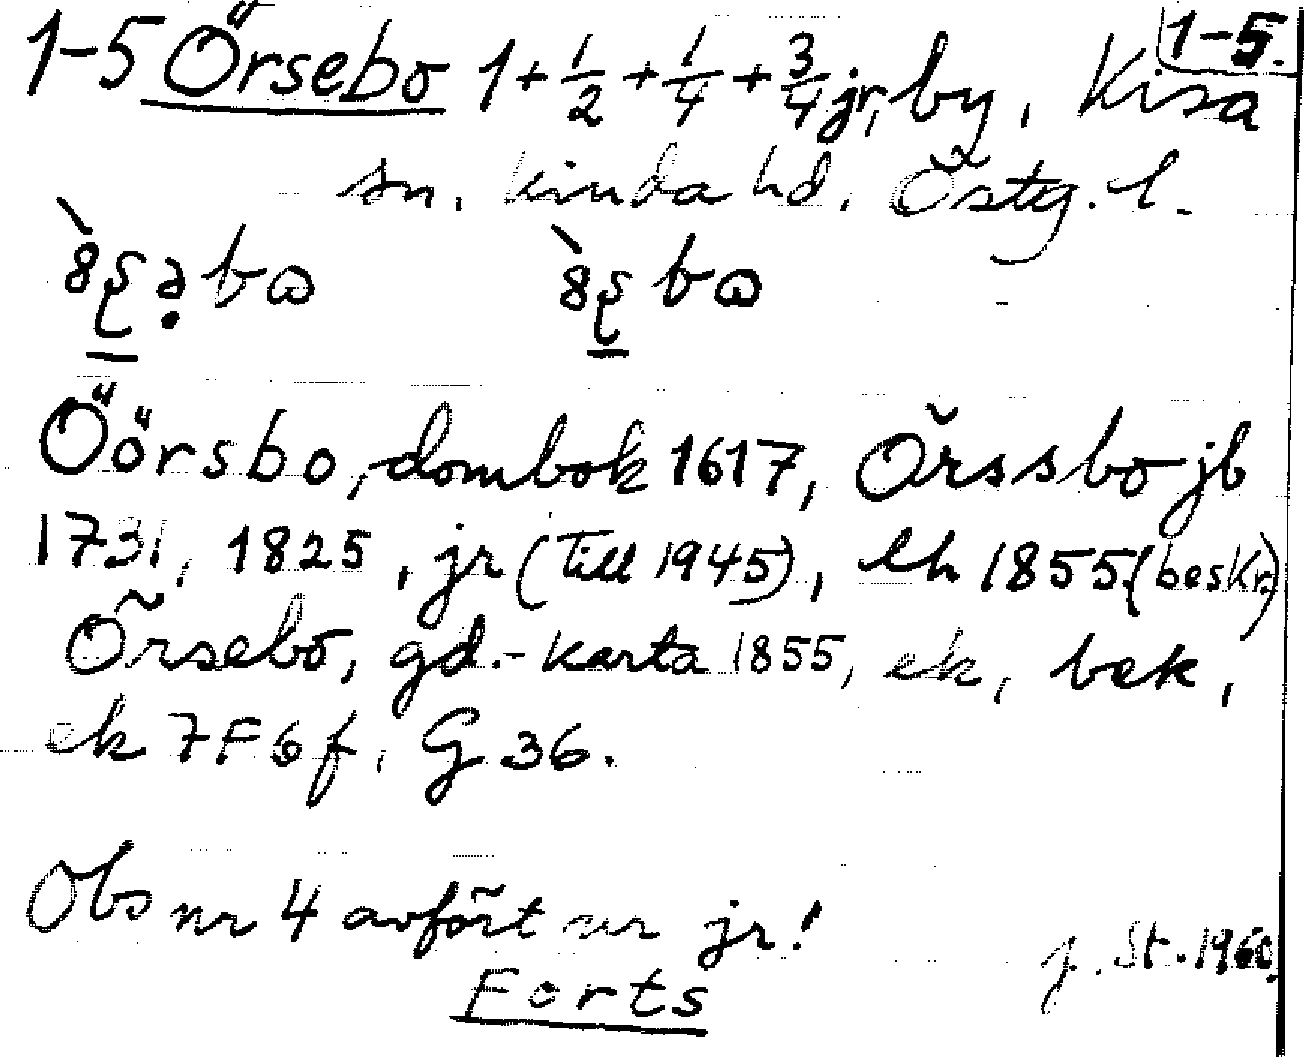 1-5.
1-5 Örsebo 1+½+¼+¾ jr, by, Kisa
sn. Kinda hd. Östg. l.
Öörsbo, dombok 1617, Örssbo jb
1731, 1825, jr (till 1945), lh 1855 (beskr.)
Örsebo, gd.-karta 1855, ek, bek,
ek 7F6f. G 36.
Obs nr 4 avfört ur jr!
Forts
J. St. 1960.